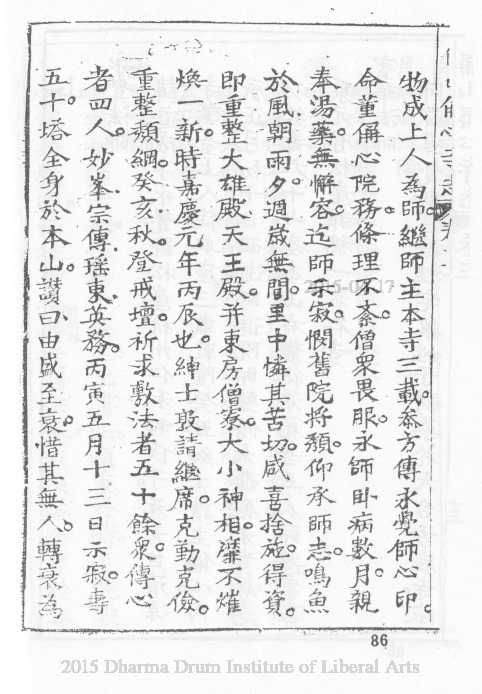 物成上人為師。繼師主本寺三載。叅方傳永覺師心印。
命董俻心院務。條理不紊。僧衆畏服。永師卧病數月。親
奉湯藥。無懈容。迄師示寂。憫舊院將頹。仰承師志。鳴魚
於風朝雨夕。週歲無間。里中憐其苦切。咸喜捨施。得資。
即重整大雄殿。天王殿。幷東房僧寮。大小神相。靡不煌
煥一新。時嘉慶元年丙辰也。紳士殷請繼席。克勤克儉。
重整頽綱。癸亥秋登戒壇。祈求敷法者五十餘衆。傳心
者四人。妙峯宗傳瑶東英務。丙寅五月十三日示寂。壽
五十。塔全身於本山。讚曰。由盛至衰。惜其無人。轉衰為
86
2015 Dharma Drum Institute of Liberal Arts